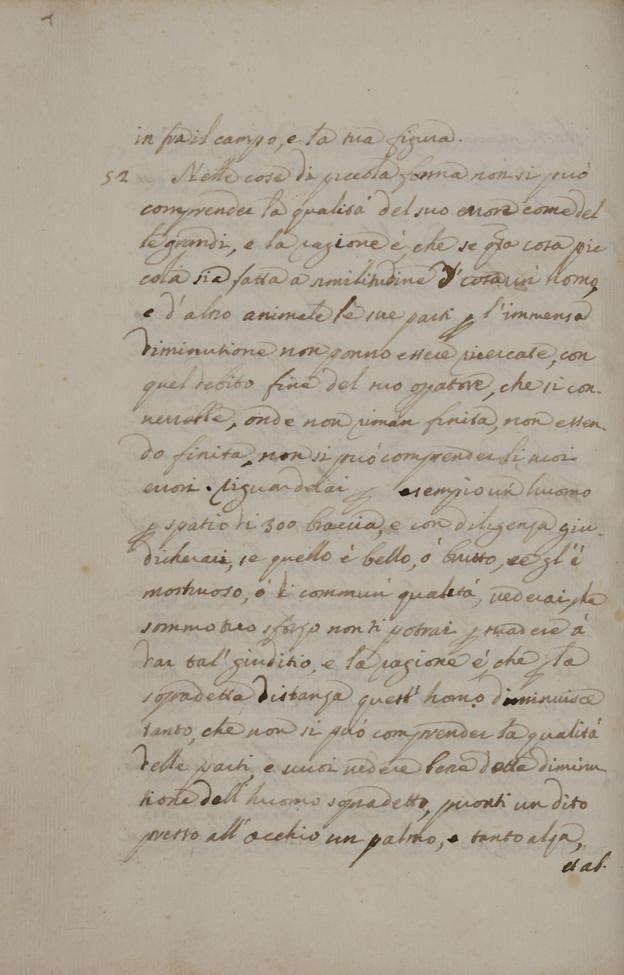 in fra il campo, e la tua figura.
52 Nelle cose di piccola forma non si può
comprender la qualità del suo errore come del
le grandi, e la ragione é, che se q̃sta cosa pic
cola sia fatta a similitudine d' un' homo,
e d'altro animale le sue parti p l'immensa
diminutione non ponno essere ricercate, con
quel debito fine del suo opatore, che si con-
verrebbe, onde non riman finita, non essen-
do finita, non si può comprender li suoi
errori. riguarderai p esempio un' huomo
p spatio di 300 braccia, e con diligenza giu-
dicherai, se quello é bello, ó brutto, se gl'é
mostruoso, ó di commun' qualità, vederai, che
sommo tuo sforzo non ti potrai psuadere á
dar tal' giuditio, e la ragione é, che p la
sopradetta distanza quest' homo diminuisce
tanto, che non si può comprender la qualità
delle parti, e se vuoi vedere bene detta diminu
tione dell' huomo sopradetto, ponti un dito
presso all' occhio un palmo, e tanto alza,
et ab.